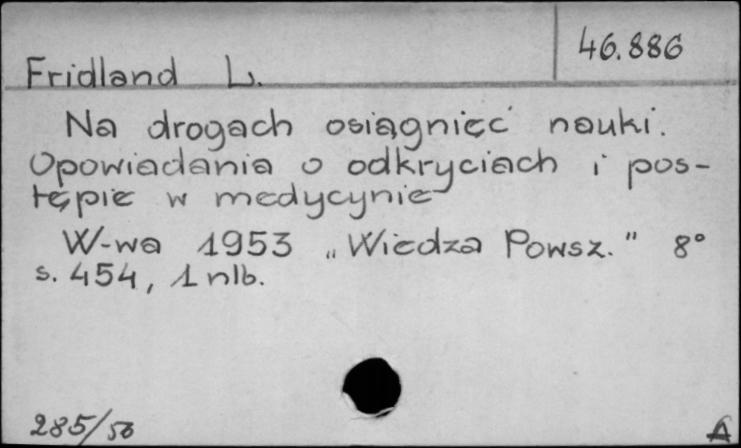 46.886
Fridland L.
Na drogach osiągnięć nauki.
Opowiadania o odkryciach i pos-
tępie w medycynie
W-wa 1953 „Wiedza Powsz." 8°
s. 454, 1 nlb.
285/56
A